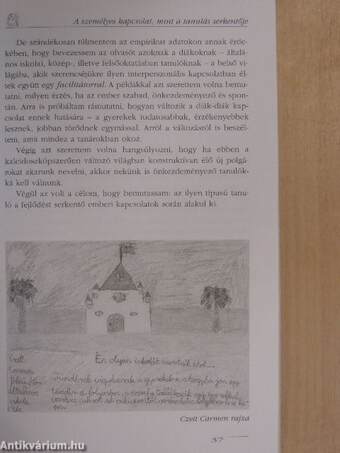 A személyes kapcsolat, mint a tanulás serkentője
De szándékosan túlmentem az empirikus adatokon annak érde-
kében, hogy bevezessem az olvasót azoknak a diákoknak – általá-
nos iskolai, közép-, illetve felsőoktatásban tanulóknak – a belső vi-
lágába, akik szerencséjükre ilyen interperszonális kapcsolatban él-
tek együtt egy facilitátorral. A példákkal azt szerettem volna bemu-
tatni, milyen érzés, ha az ember szabad, önkezdeményező és spon-
tán. Arra is próbáltam rámutatni, hogyan változik a diák-diák kap-
csolat ennek hatására – a gyerekek tudatosabbak, érzékenyebbek
lesznek, jobban törődnek egymással. Arról a változásról is beszél-
tem, ama mindez a tanárokban okoz.
Végig azt szerettem volna hangsúlyozni, hogy ha ebben a
kaleidoszkópszerűen változó világban konstruktívan élő új polgá-
rokat akarunk nevelni, akkor nekünk is önkezdeményező tanulók-
ká kell válnunk.
Végül az volt a célom, hogy bemutassam: az ilyen típusú tanu-
ló a fejlődést serkentő emberi kapcsolatok során alakul ki.
Czeit
Carmen
Én olyan iskolát
általános
iskola
Czeit Carmen rajza
57
Antikvárium.hu